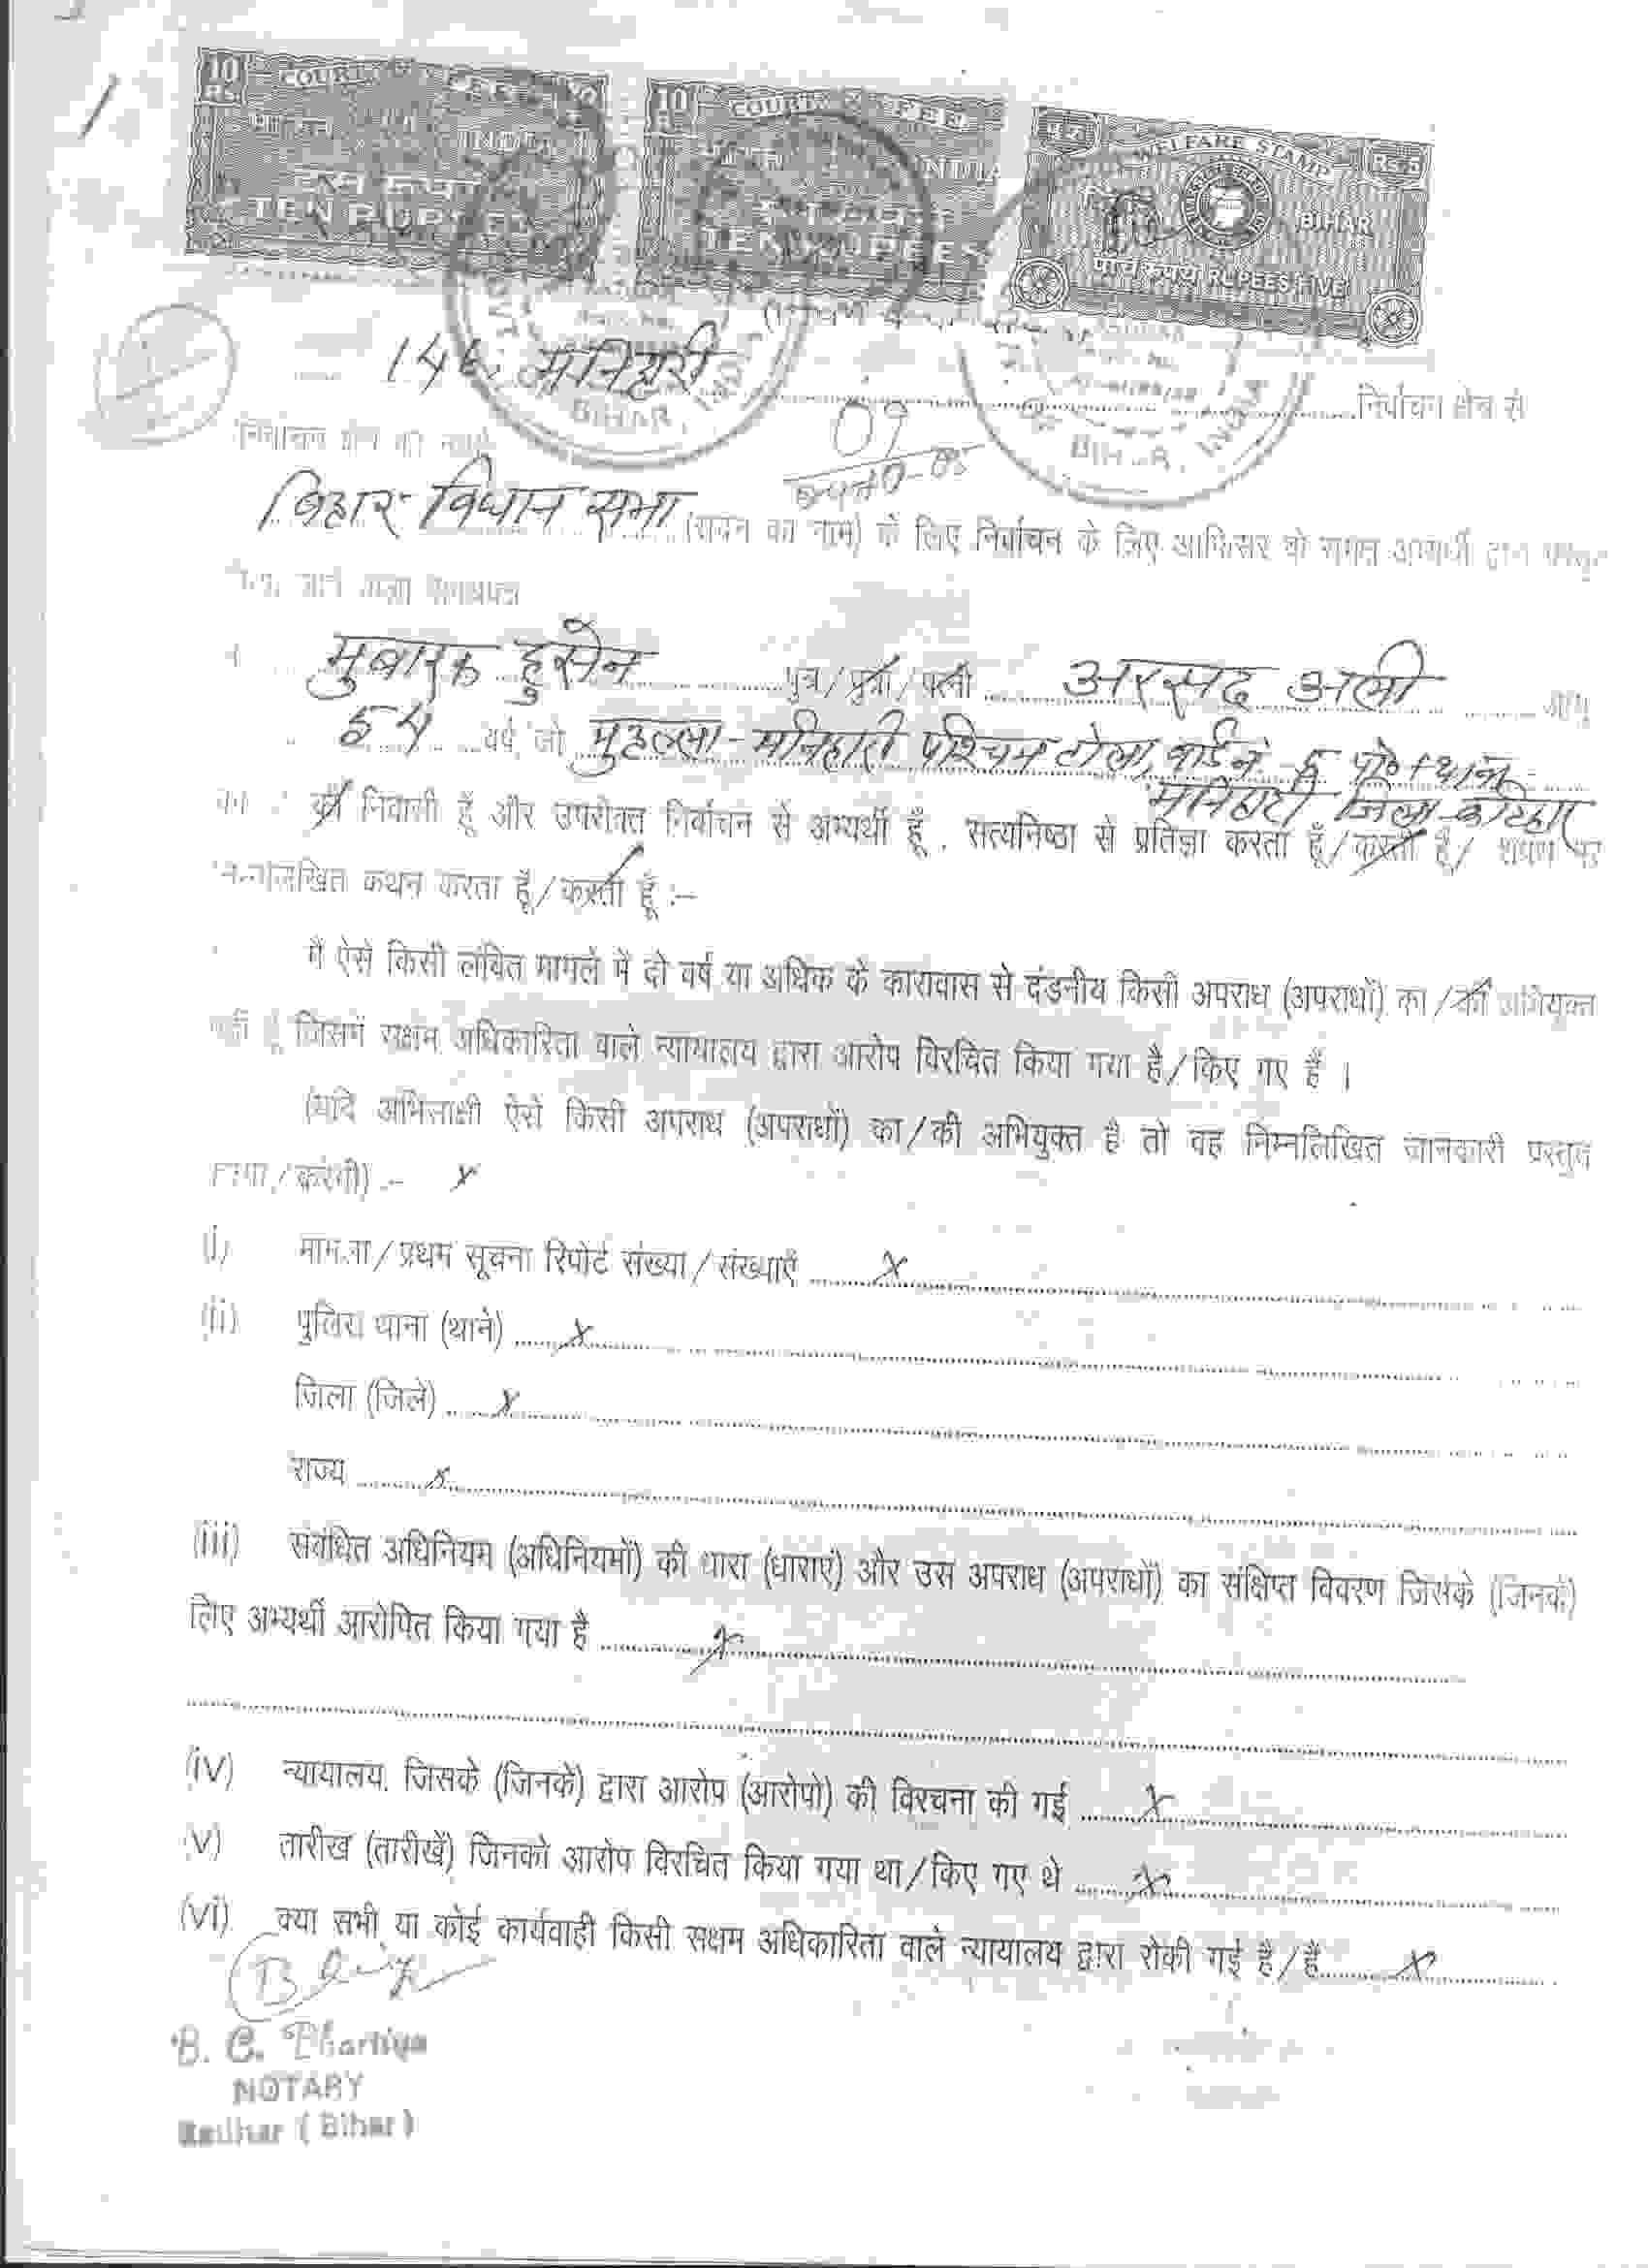 10 Rs. COURT FEE
INDIA
TEN RUPEES
10 COURT FEE
INDIA
TEN RUPEES
WELFARE STAMP Rs.5
BIHAR
पांच रूपये RUPEES FIVE
BIHAR, INDIA
OF BIHAR, INDIA
मनिहारी निर्वाचन क्षेत्र से
निर्वाचन क्षेत्र का नाम
09
बिहार विधान सभा (सदन का नाम) के लिए निर्वाचन के लिए आफिसर के समक्ष अभ्यर्थी द्वारा प्रस्तुत
किये जाने वाला शपथपत्र
मुबारक हुसेन पुत्र/पुत्री/पत्नी अरसद अली आयु
54 वर्ष जो मुहल्ला-मनिहारी पश्चिम टोला, वार्ड नं-5 पो०+थाना-
मनिहारी जिला-कटिहार
का / की निवासी हूँ और उपरोक्त निर्वाचन से अभ्यर्थी हूँ, सत्यनिष्ठा से प्रतिज्ञा करता हूँ/करती हूँ/ शपथ पर
निम्नलिखित कथन करता हूँ/करती हूँ :-
मैं ऐसे किसी लंबित मामले में दो वर्ष या अधिक के कारावास से दंडनीय किसी अपराध (अपराधों) का/की अभियुक्त
नहीं हूँ जिसमें सक्षम अधिकारिता वाले न्यायालय द्वारा आरोप विरचित किया गया है/किए गए हैं ।
(यदि अभिसाक्षी ऐसे किसी अपराध (अपराधों) का/की अभियुक्त है तो वह निम्नलिखित जानकारी प्रस्तुत
करेगा/करेगी) :- x
(i) मामला/प्रथम सूचना रिपोर्ट संख्या/संख्याएँ x
(ii) पुलिस थाना (थाने) x
जिला (जिले) x
राज्य x
(iii) संबंधित अधिनियम (अधिनियमों) की धारा (धाराएं) और उस अपराध (अपराधों) का संक्षिप्त विवरण जिसके (जिनके)
लिए अभ्यर्थी आरोपित किया गया है x
(iv) न्यायालय जिसके (जिनके) द्वारा आरोप (आरोपों) की विरचना की गई x
(v) तारीख (तारीखें) जिनको आरोप विरचित किया गया था/किए गए थे x
(vi) क्या सभी या कोई कार्यवाही किसी सक्षम अधिकारिता वाले न्यायालय द्वारा रोकी गई है/हैं x
B. C. Bhartiya
NOTARY
Katihar (Bihar)